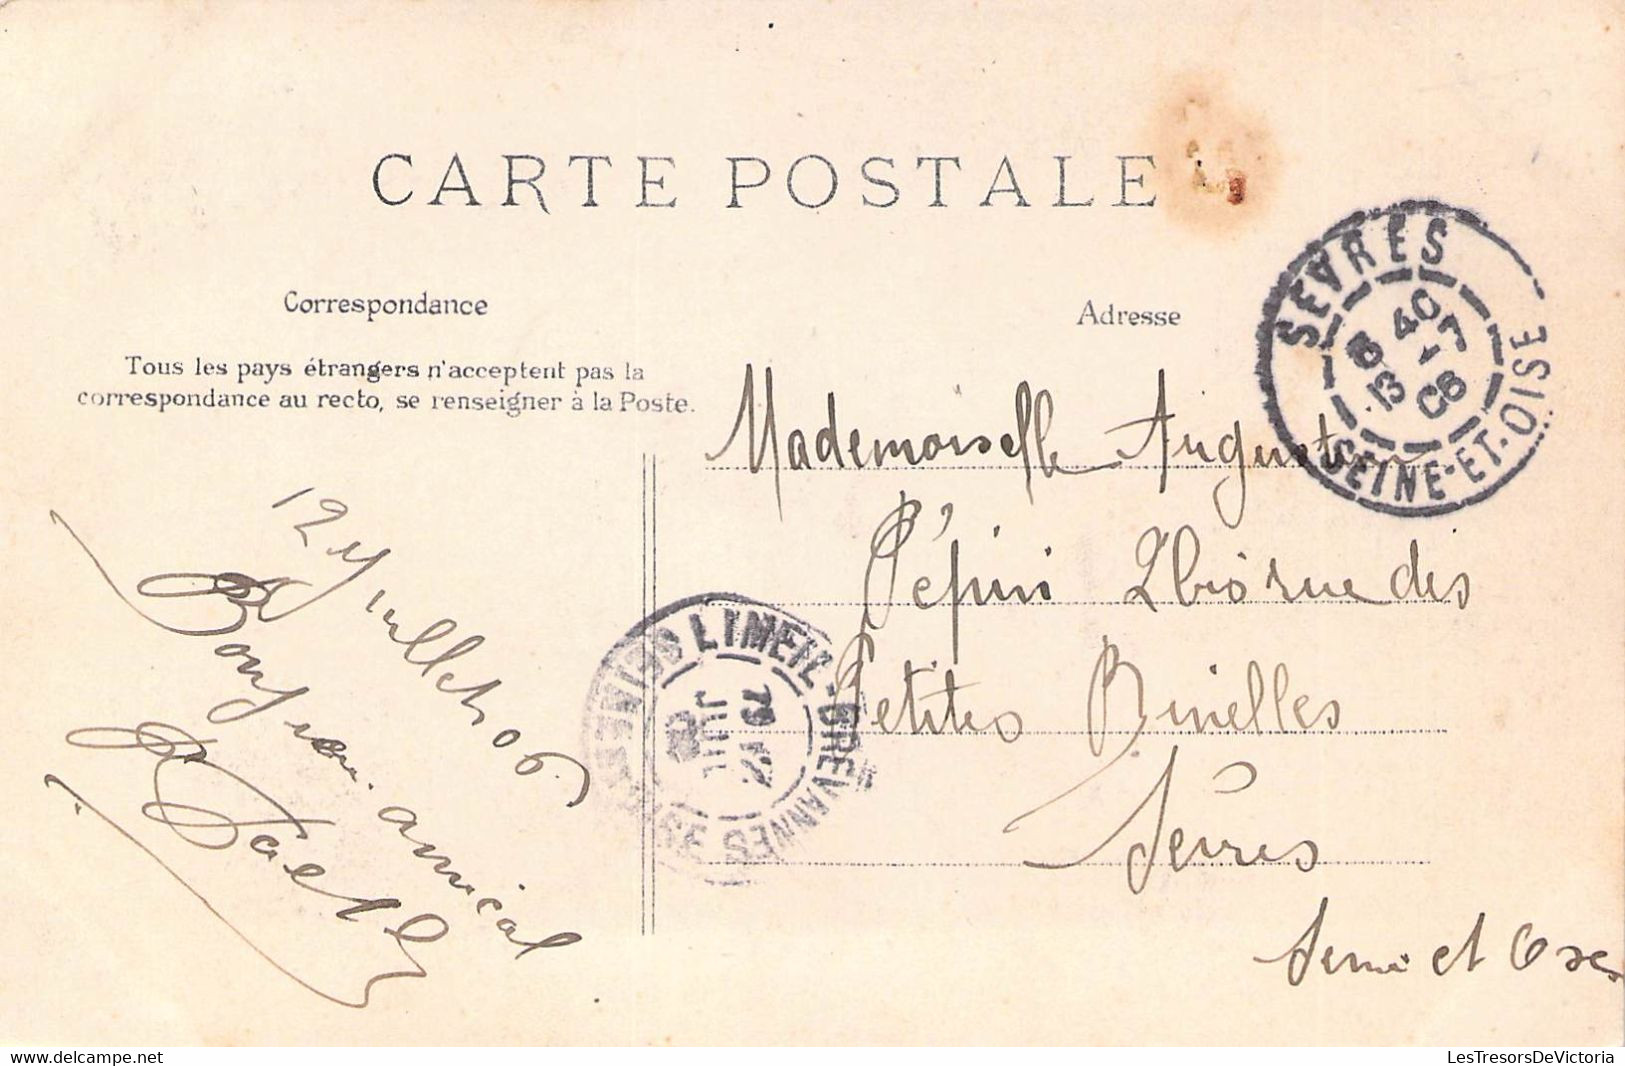 CARTE POSTALE
Correspondance
Adresse
Tous les pays étrangers n'acceptent pas la
correspondance au recto, se renseigner à la Poste.
SEVRES
8 40
13 -7
06
SEINE-ET-OISE
Mademoiselle
Pépin 2 bis rue des
Petites Binelles
Sèvres
Seine et Oise
LIMEIL-BREVANNES
JUIL
12 Juillet 06
Bonjour amical
LesTresorsDeVictoria